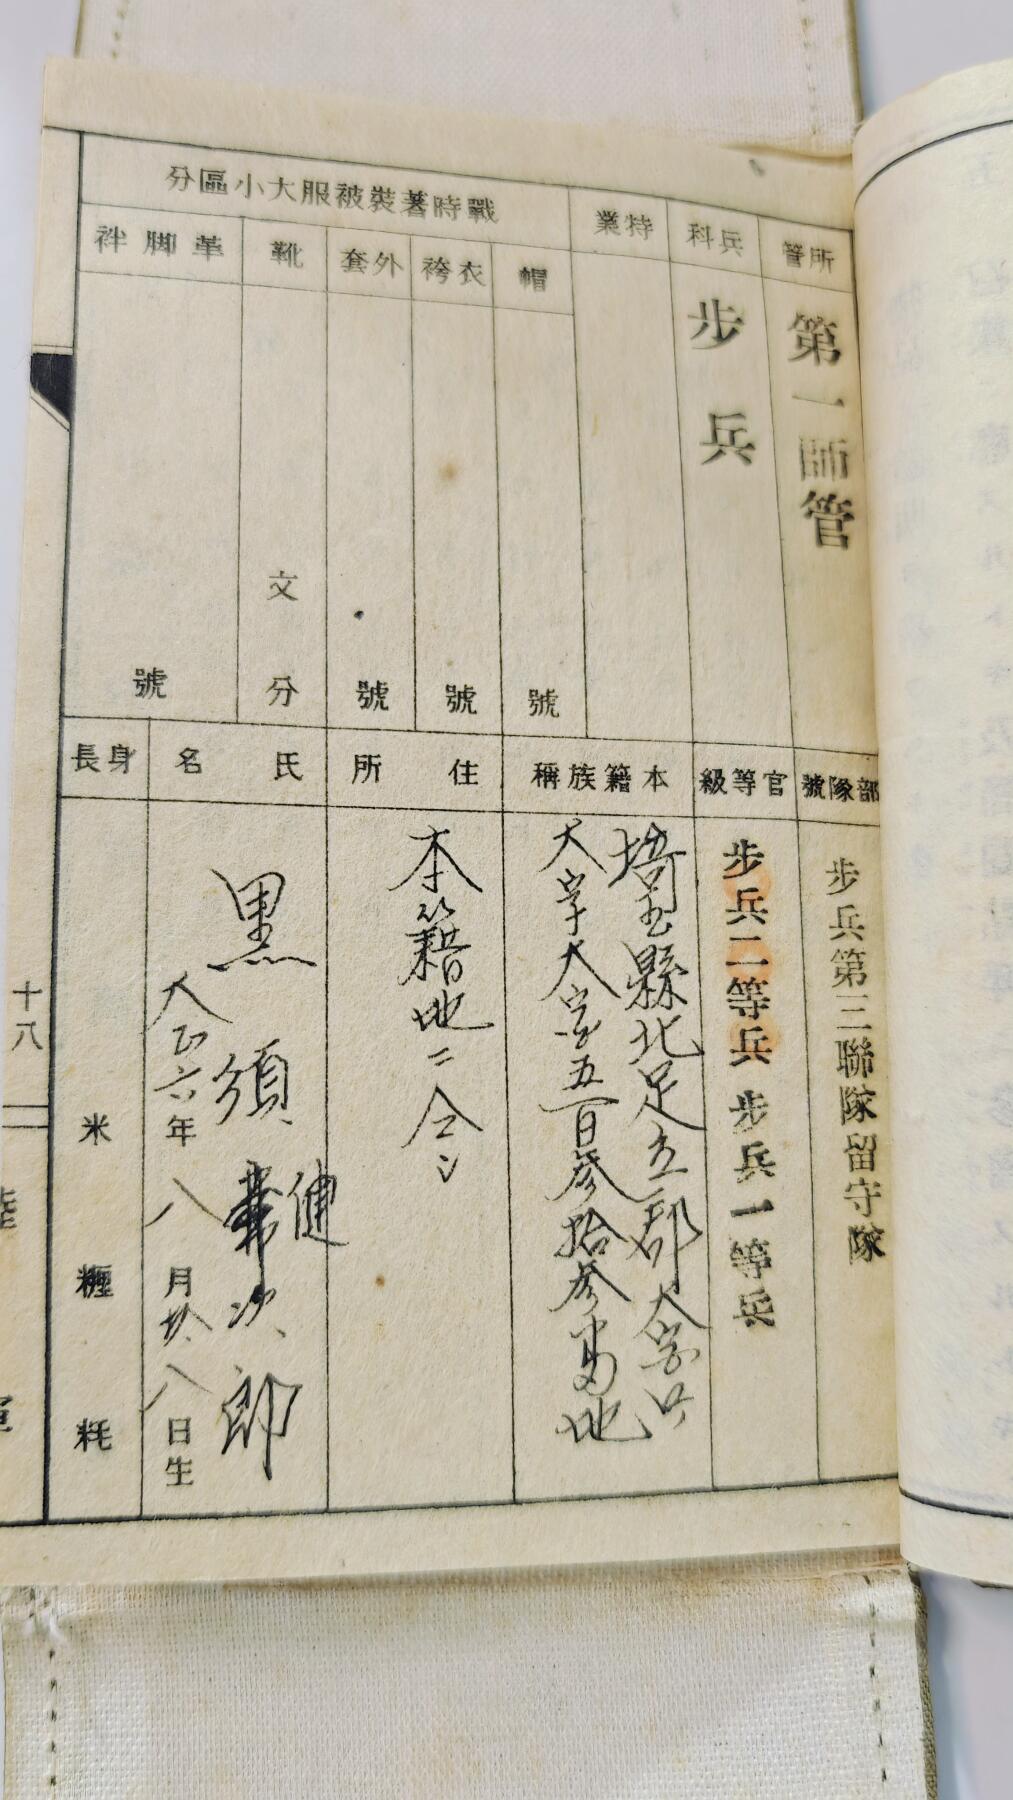 所管
第一師管
兵科
步兵
特業
戰時著裝被服大小區分
帽
號
衣袴
號
外套
號
靴
文
分
革脚絆
號
部隊號
步兵第三聯隊留守隊
官等級
步兵二等兵 步兵一等兵
本籍族稱
埼玉縣北足立郡大字
大字大字五百參拾參番地
住所
本籍地ニ仝シ
氏名
黒須健次郎
大正六年八月拾八日生
身長
米
糎
粍
十八